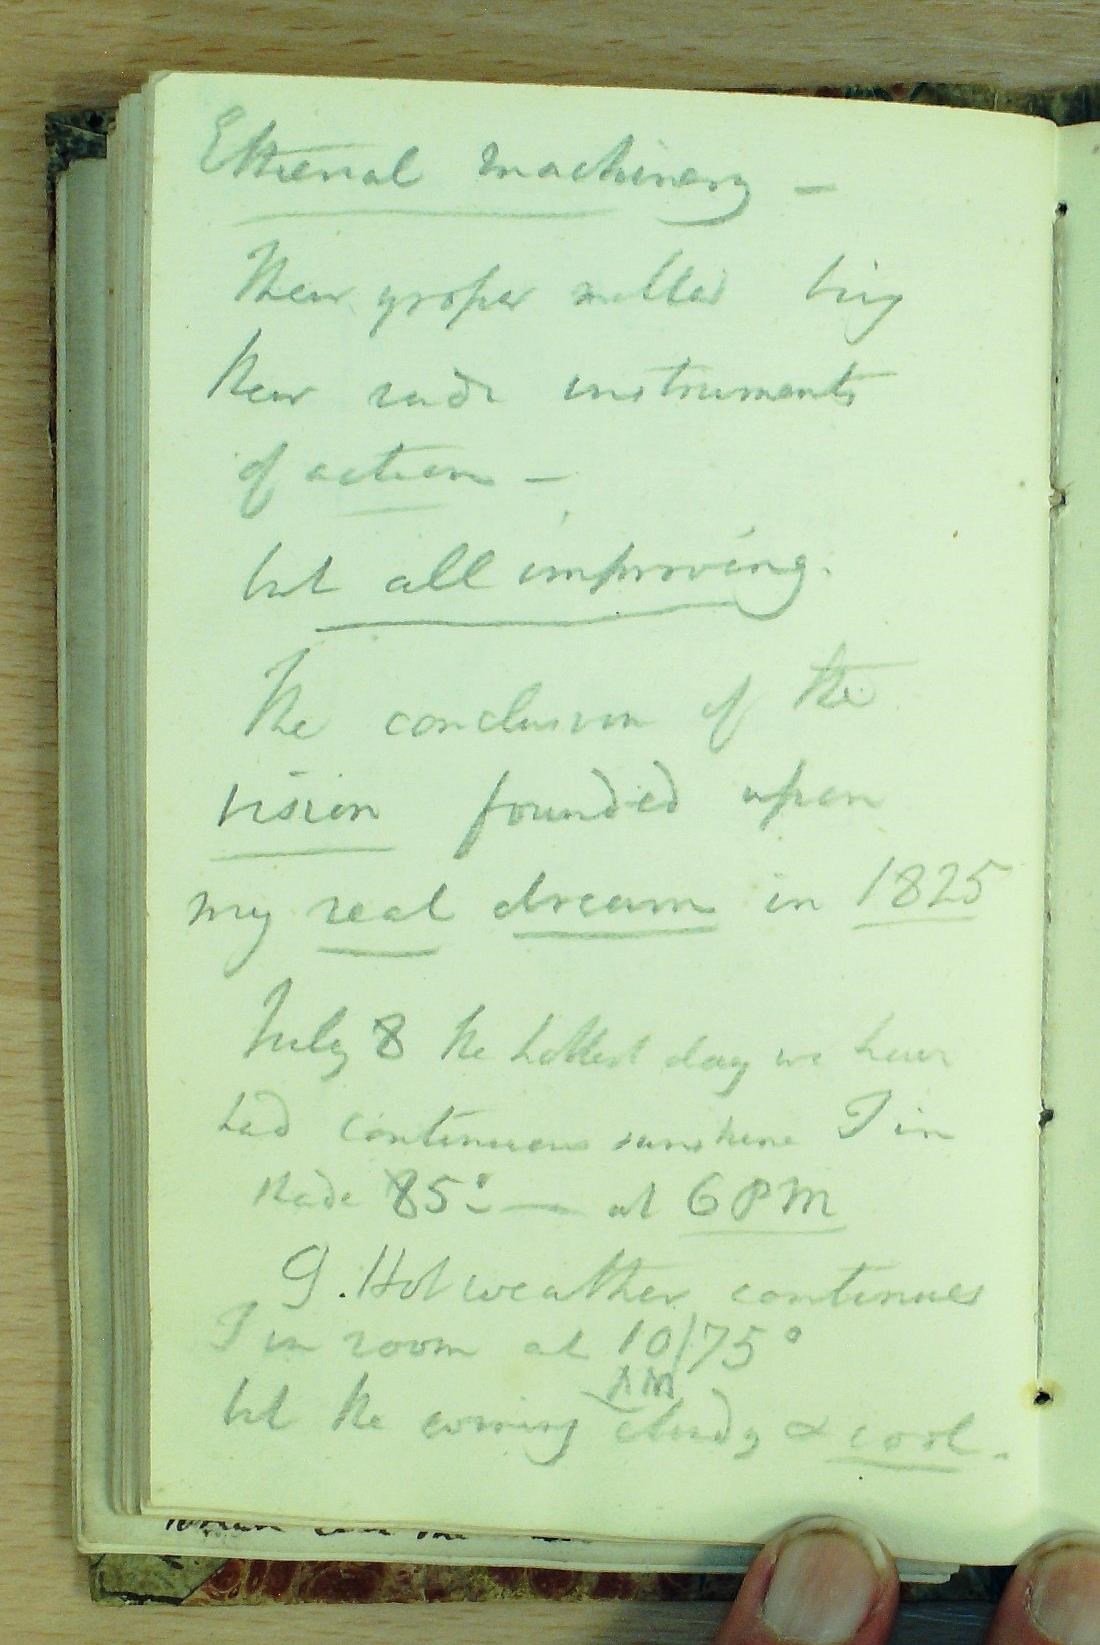 Etherial machinery –
Their proper matter being
their rude instruments
of action –
but all improving.
The conclusion of the
vision founded upon
my real dream in 1825
July 8 the hottest day we have
had continuous sunshine T in
shade 85° — at 6 PM
9. Hot weather continues
T in room at 10/75°
AM
but the evening cloudy & cool.